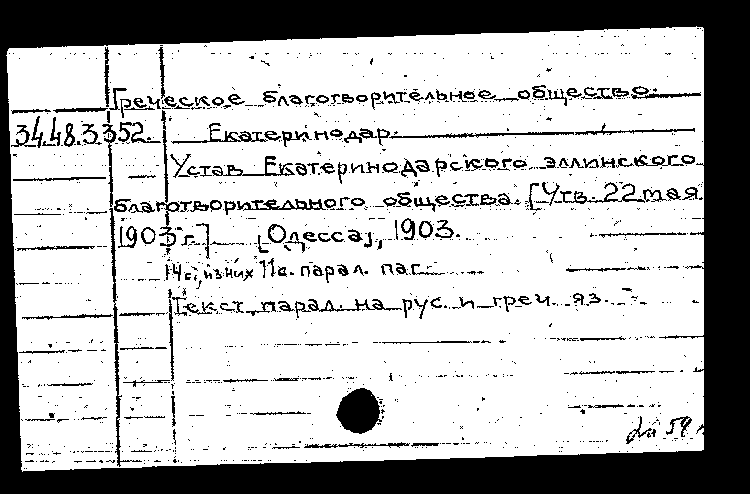 Греческое благотворительное общество.
34.48.3352. Екатеринодар.
Устав Екатеринодарского эллинского
благотворительного общества. [Утв. 22 мая
1903 г.] [Одесса], 1903.
14 с., из них 11 с. парал. паг.
Текст парал. на рус. и греч. яз.